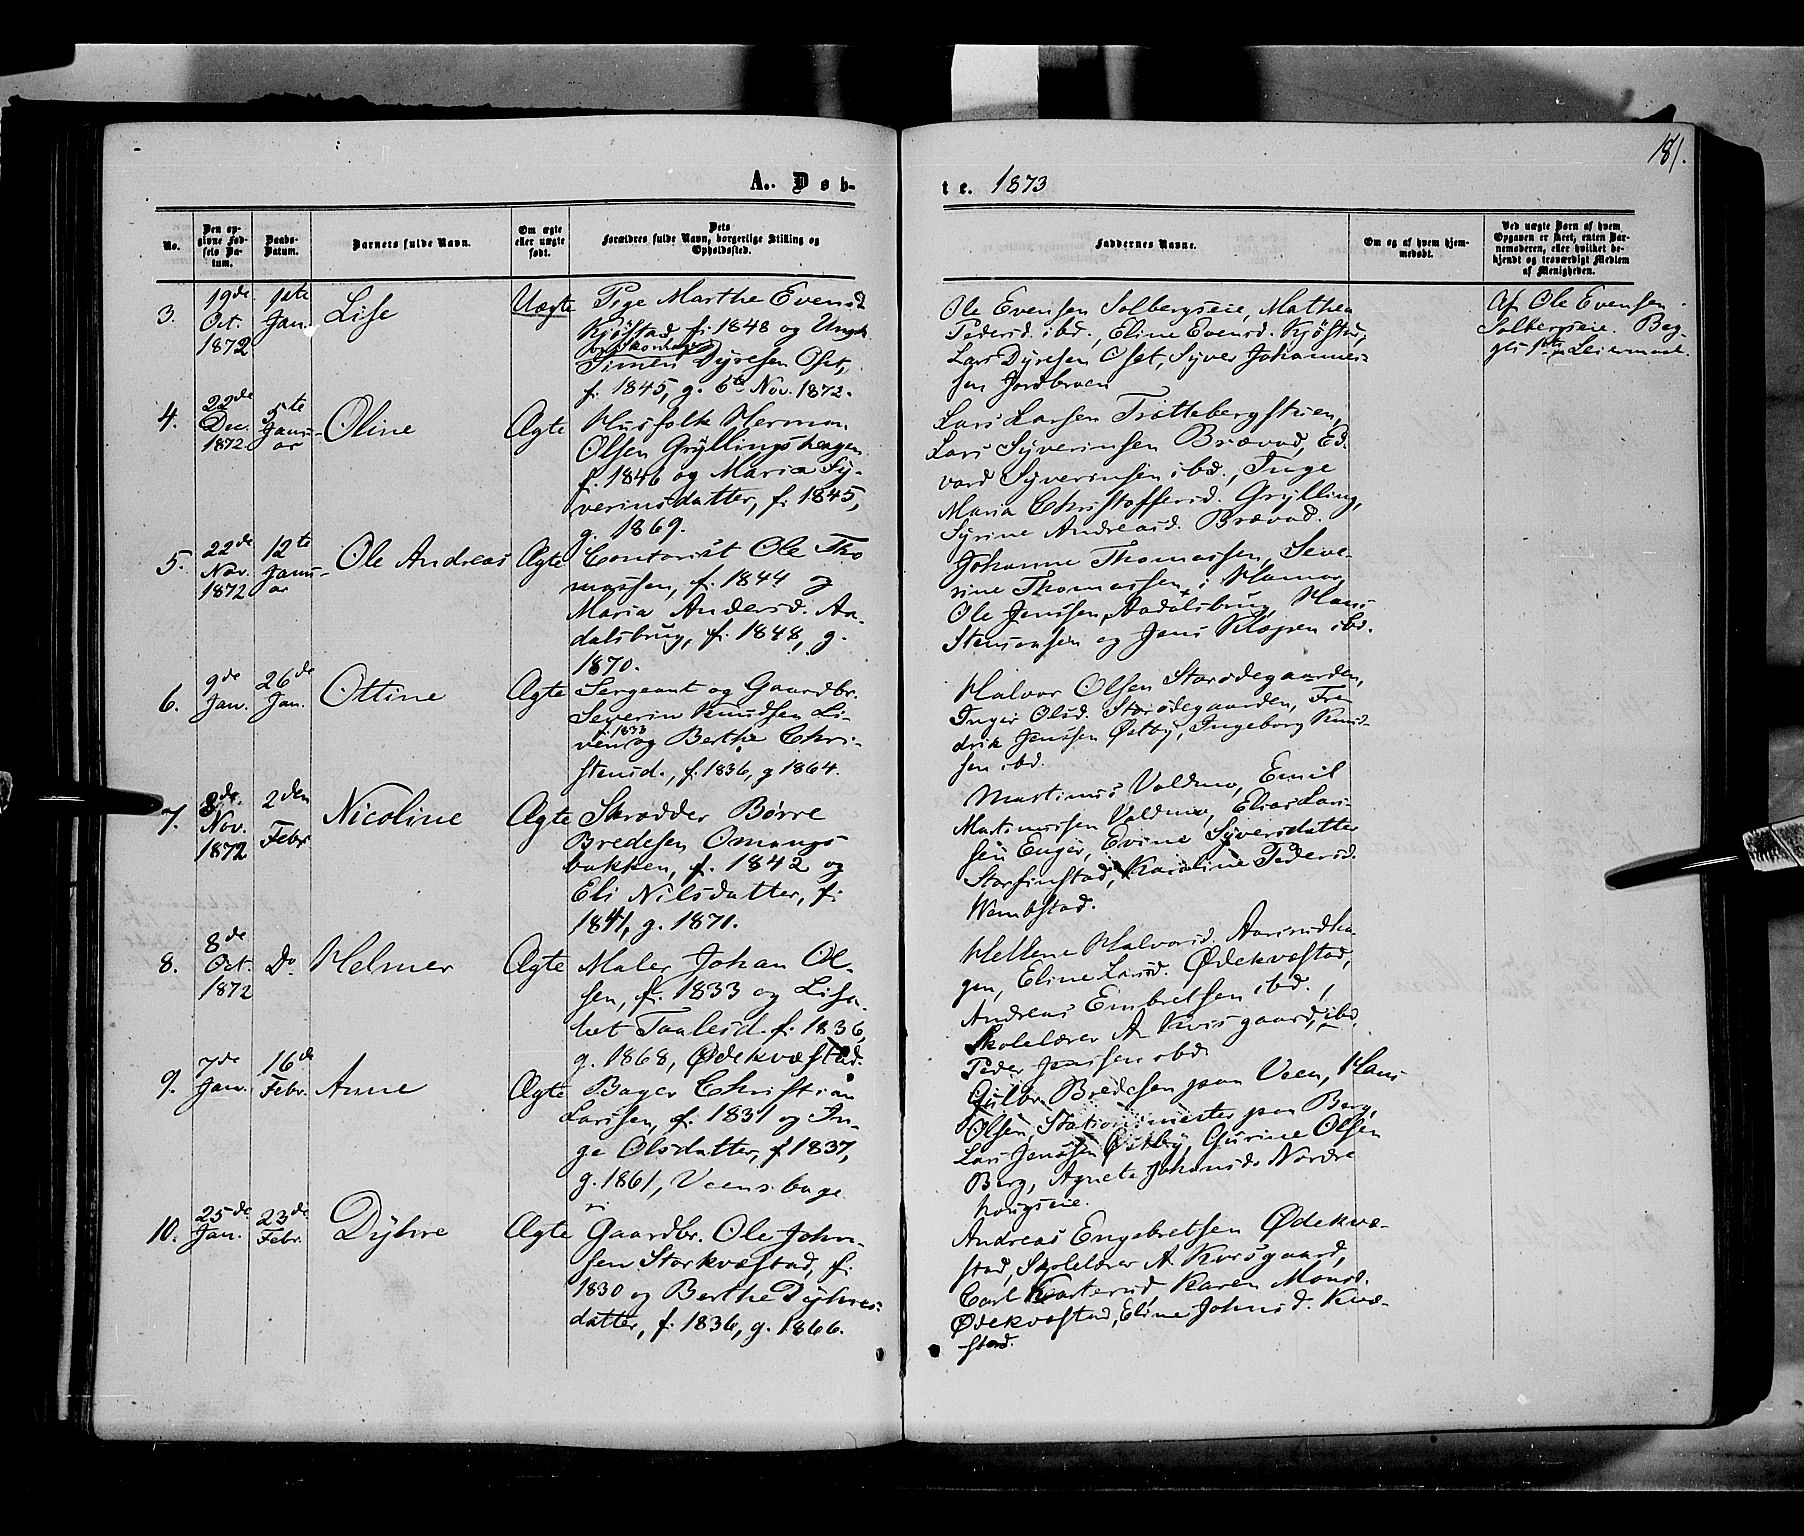 181.
A. Døb-
te. 1873
No.
Den op-
givne Fød-
sels Da-
tum.
Daabs-
Datum.
Barnets fulde Navn.
Om ægte
eller uægte
født.
Dets
Forældres fulde Navn, borgerlige Stilling og
Opholdssted.
Faddernes Navne.
Om og af hvem hjem-
medøbt.
Ved uægte Børn af hvem
Opgaven er skeet, enten Bar-
nemoderen, eller hvilket be-
kjendt og troværdigt Medlem
af Menigheden.
3.
19de
Oct.
1872
1ste
Jan.
Lise
Uægte
Pige Marthe Evensd.
Kjøstad f. 1848 og Ungk.
Simen Dyresen Oset,
f. 1845, g. 6te Nov. 1872.
Ole Evensen Solbergseie, Mathea
Pedersd. ibd., Eline Evensd. Kjøstad,
Lars Dyresen Oset, Syver Johannes-
sen Jordbroen
Af Ole Evensen
Solbergseie. Beg-
ges 1ste Leiermaal.
4.
22de
Dec.
1872
5te
Janu-
ar
Oline
Ægte
Husfolk Herman
Olsen Gryllingshagen
f. 1846 og Maria Sy-
verinsdatter, f. 1845,
g. 1869.
Lars Larsen Trøttebergstuen,
Lars Syverinsen Brævad, Ed-
vard Syverinsen ibd., Inge
Maria Christoffersd. Grylling,
Syrine Andreasd. Brævad.
5.
22de
Nov.
1872
12te
Janu-
ar
Ole Andreas
Ægte
Contorist Ole Tho
massen, f. 1844 og
Maria Andersd. Aa-
dalsbrug, f. 1848, g.
1870.
Johanne Thomassen, Seve-
rine Thomassen i Hamar,
Ole Jenssen, Aadalsbrug, Hans
Stensonsen og Jens Klæpen ibd.
6.
9de
Jan.
26de
Jan.
Ottine
Ægte
Sergeant og Gaardbr.
Severin Knudsen Li-
f. 1833
ven og Berthe Chri-
stensd., f. 1836, g 1864.
Halvor Olsen Storødegaarden,
Inger Olsd. Storødegaarden, Fre-
drik Jenssen Østby, Ingeborg Knud-
sen ibd.
7.
8de
Nov.
1872
2den
Febr
Nicoline
Ægte
Skrædder Børre
Bredesen Omangs
bakken, f. 1842 og
Eli Nilsdatter, f.
1841, g. 1871.
Martinus Valdmo, Emil
Martinussen Valdmo, Elias Lar-
sen Enger, Evine Syversdatter
Storfinstad, Karoline Pedersd.
Wembstad.
8.
8de
Oct.
1872
Do
Helmer
Ægte
Maler Johan Ol-
sen, f. 1833 og Lisa-
bet Taalesd. f. 1836,
g. 1868, Ødekvæstad.
Hellene Halvorsd. Aarsrudha-
gen, Eline Larsd. Ødekvæstad,
Andreas Embretsen ibd.,
Skolelærer A. Kvisgaard, ibd.
Peder Jenssen ibd.
9.
7de
Jan.
16de
Febr.
Anne
Ægte
Bager Christian
Larssen, f. 1831 og In-
ge Olsdatter, f 1837,
g. 1861, Veensbage
ri
Gulbr. Bredesen paa Veen, Hans
Olsen, Stationsmester paa Berg,
Lars Jenssen Østby, Gurine Olsen
Berg, Agnete Johansd. Nordre
haugseie.
10.
25de
Jan.
23de
Febr.
Dyhre
Ægte
Gaardbr. Ole John-
sen Storkvæstad, f.
1830 og Berthe Dyhres-
datter, f. 1836, g. 1866.
Andreas Engebretsen Ødekvæ-
stad, Skolelærer A Kvisgaard,
Carl Kvarterud, Karen Monsd.
Ødekvæstad, Eline Johnsd. Kvæ-
stad.